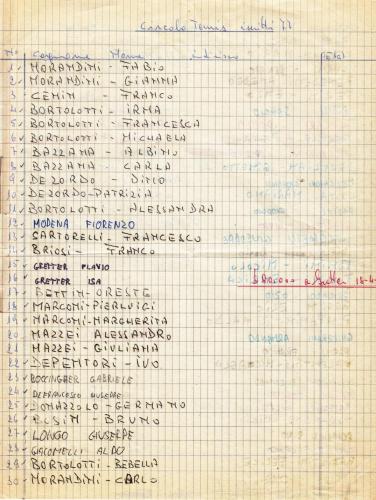 Circolo Tennis iscritti 77
No Cognome Nome
1 MORANDINI - FABIO
2 MORANDINI - GIANNA
3 CEMIN - FRANCO
4 BORTOLOTTI - IRMA
5 BORTOLOTTI - FRANCESCA
6 BORTOLOTTI - MICHAELA
7 BAZZANA - ALBINO
8 BAZZANA - CARLA
9 DEZORDO - DINO
10 DEZORDO - PATRIZIA
11 BORTOLOTTI - ALESSANDRA
12 MODENA FIORENZO
13 SARTORELLI - FRANCESCO
14 BRIOSI - FRANCO
15 GRETTER FLAVIO
16 GRETTER ISA
17 BETTIN - ORESTE
18 MARCONI - PIERLUIGI
19 MARCONI - MARGHERITA
20 MAZZEI ALESSANDRO
21 MAZZEI - GIULIANA
22 DEPENTORI - IVO
23 BOCCINGHER GABRIELE
24 DEFRANCESCO GIUSEPPE
25 DONAZZOLO - GERMANO
26 ELSIN - BRUNO
27 LONGO GIUSEPPE
28 GIACOMELLI ALDO
29 BORTOLOTTI - BEBELLA
30 MORANDINI - CARLO